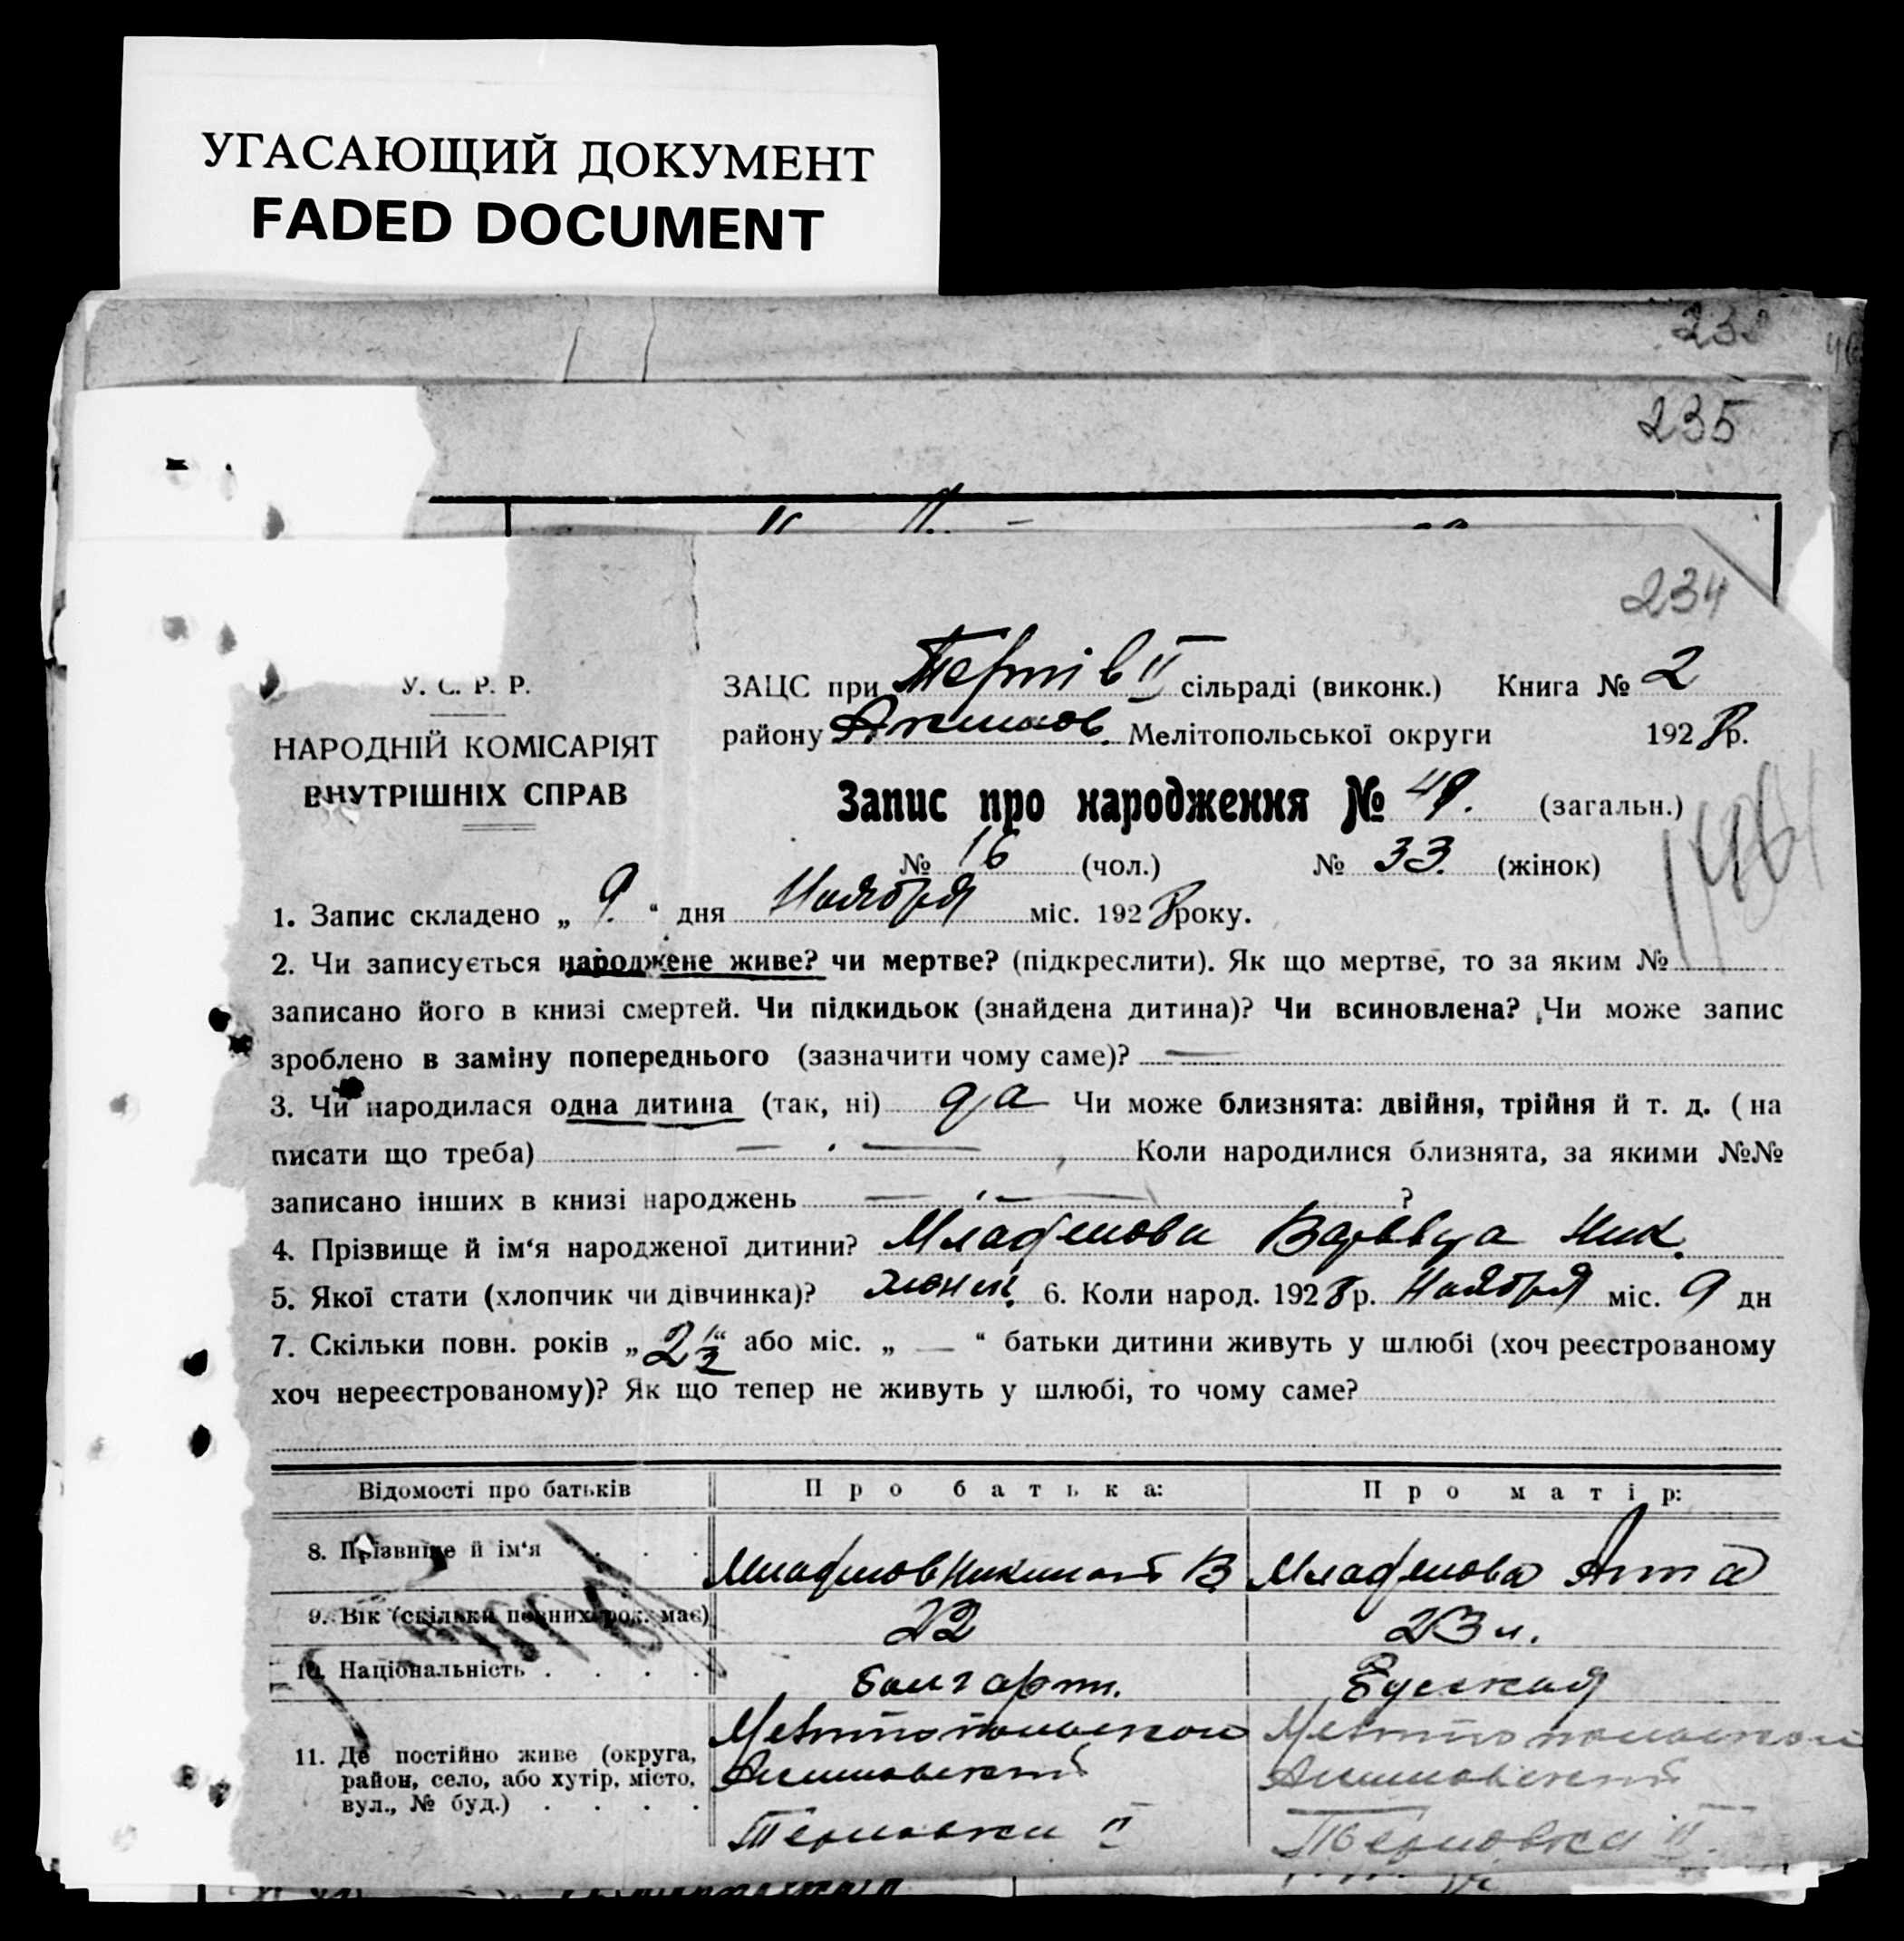 УГАСАЮЩИЙ ДОКУМЕНТ
FADED DOCUMENT
235
234
У. С. Р. Р.
НАРОДНІЙ КОМІСАРІЯТ
ВНУТРІШНІХ СПРАВ
ЗАЦС при Терпів II сільраді (виконк.) Книга № 2
району Якимов. Мелітопольської округи 1928 р.
Запис про народження № 49. (загальн.)
№ 16 (чол.) № 33. (жінок)
1. Запис складено „ 9. “ дня Ноября міс. 1928 року.
2. Чи записується народжене живе? чи мертве? (підкреслити). Як що мертве, то за яким №
записано його в книзі смертей. Чи підкидьок (знайдена дитина)? Чи всиновлена? Чи може запис
зроблено в заміну попереднього (зазначити чому саме)? —
3. Чи народилася одна дитина (так, ні) да Чи може близнята: двійня, трійня й т. д. (на
писати що треба) — — Коли народилися близнята, за якими №№
записано інших в книзі народжень — — ?
4. Прізвище й ім‘я народженої дитини? Младенова Варвара Ник.
5. Якої стати (хлопчик чи дівчинка)? женск. 6. Коли народ. 1928 р. Ноября міс. 9 дн
7. Скільки повн. років „ 2 1/2 “ або міс. „ — “ батьки дитини живуть у шлюбі (хоч реєстрованому
хоч нереєстрованому)? Як що тепер не живуть у шлюбі, то чому саме?
Відомості про батьків Про батька: Про матір:
8. Прізвище й ім‘я . . . Младенов В. Младенова Анна
9. Вік (скільки повних рок. має) 22 23 л.
10. Національність . . . . Болгарин. Русская
11. Де постійно живе (округа,
район, село, або хутір, місто,
вул., № буд.) . . . .
Мелитопольской Мелитопольской
Акимовский Акимовский
Терновка II Терновка II